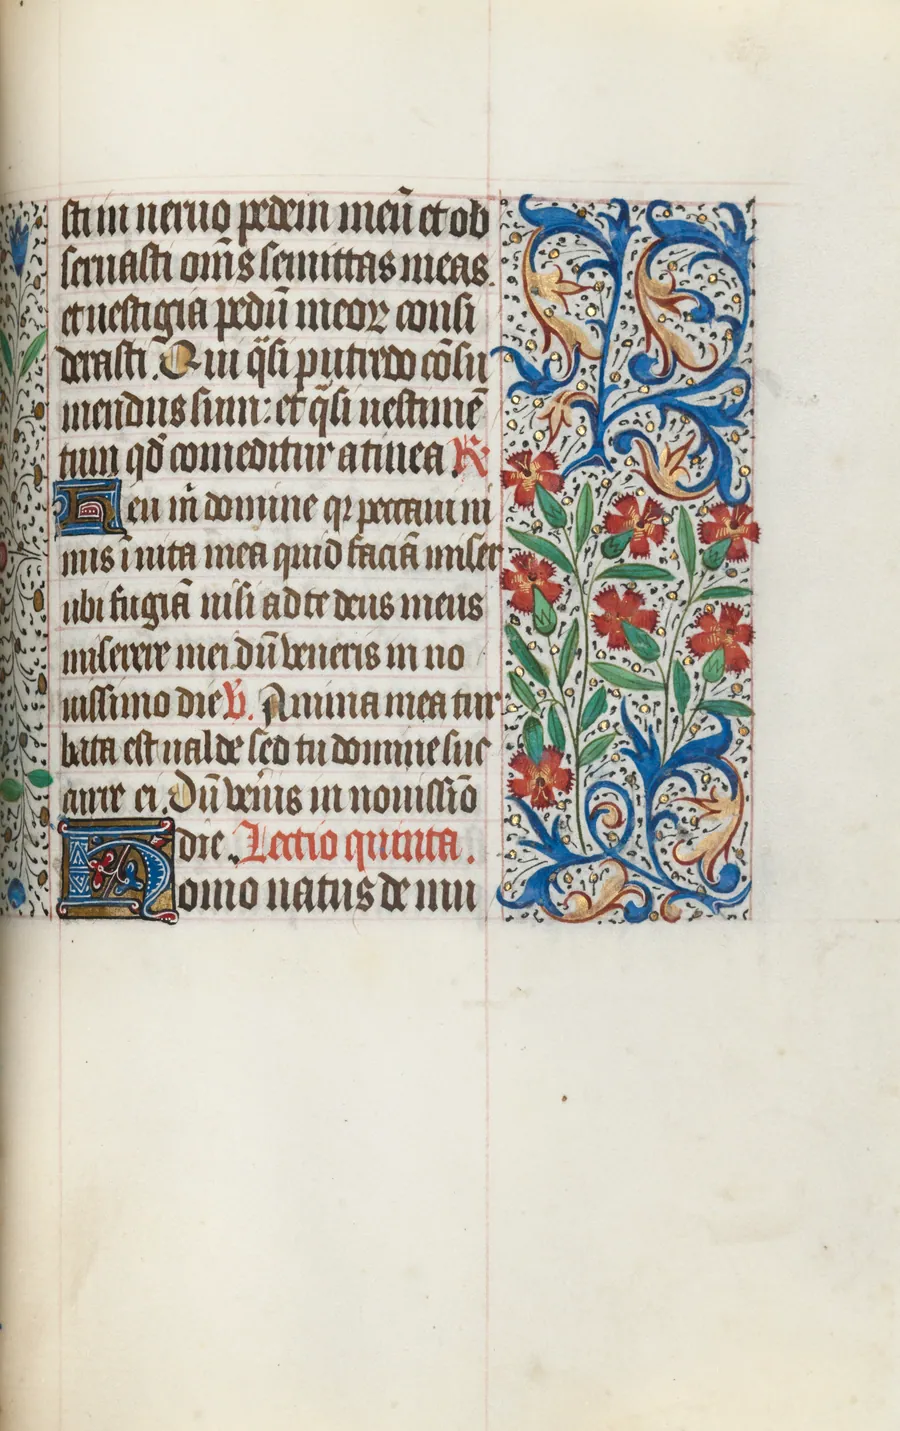 sti in neruo pedem meū et ob
seruasti om̄s semittas meas.
et uestigia pedū meoꝝ consi
derasti. Qui q̄si putredo cōsu
mendus sum: et q̄si uestimē
tum qd̄ comeditur a tinea ℟
Heu m̄ domine qꝛ peccaui ni
mis ī uita mea quid faciā miser
ubi fugiā nisi ad te deus meus
miserere mei dū veneris in no
uissimo die ℣. Anima mea tur
bata est ualde sed tu domine suc
curre ei. Dū ven̄is in nouissīo
die. Lectio quinta.
Homo natus de mu